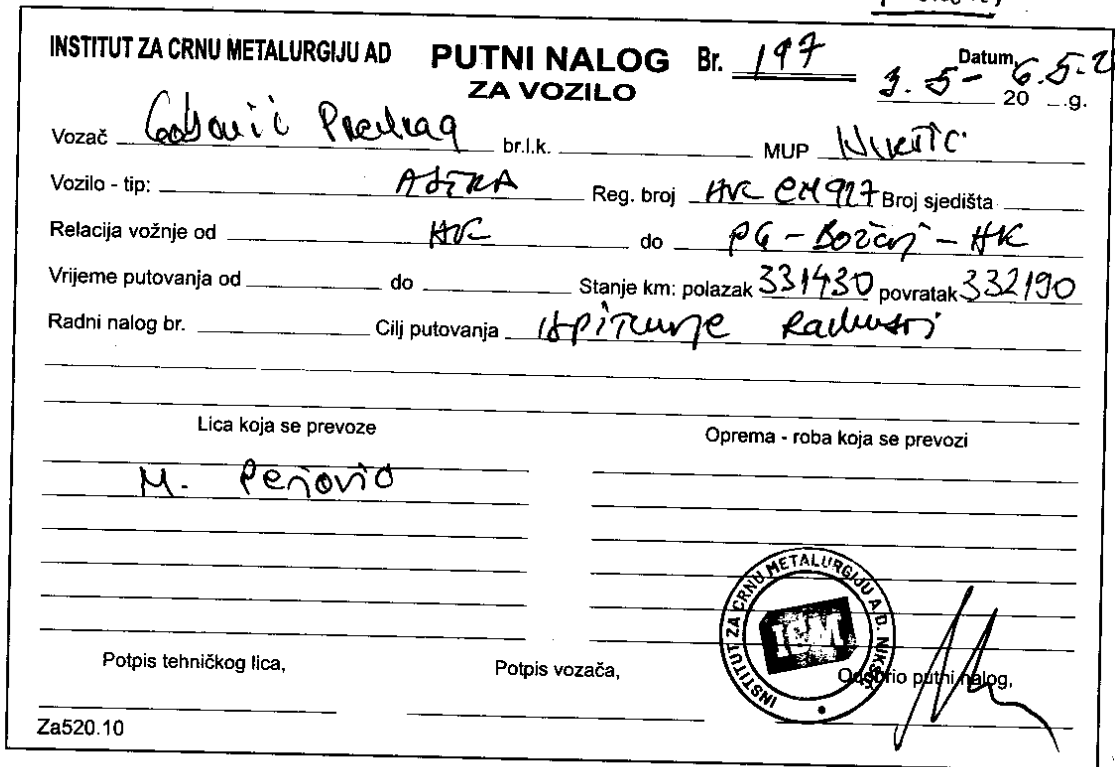 INSTITUT ZA CRNU METALURGIJU AD PUTNI NALOG Br. 197 Datum,
ZA VOZILO 3. 5 - 6. 5. 2 20 g.
Vozač Predrag br.l.k. MUP
Vozilo - tip: ASTRA Reg. broj 927 Broj sjedišta
Relacija vožnje od do PG - Božaj - HK
Vrijeme putovanja od do Stanje km: polazak 331430 povratak 332190
Radni nalog br. Cilj putovanja
Lica koja se prevoze Oprema - roba koja se prevozi
M. Perović
INSTITUT ZA CRNU METALURGIJU A.D. NIKŠIĆ
ICM
Potpis tehničkog lica, Potpis vozača, Odobrio putni nalog,
Za520.10